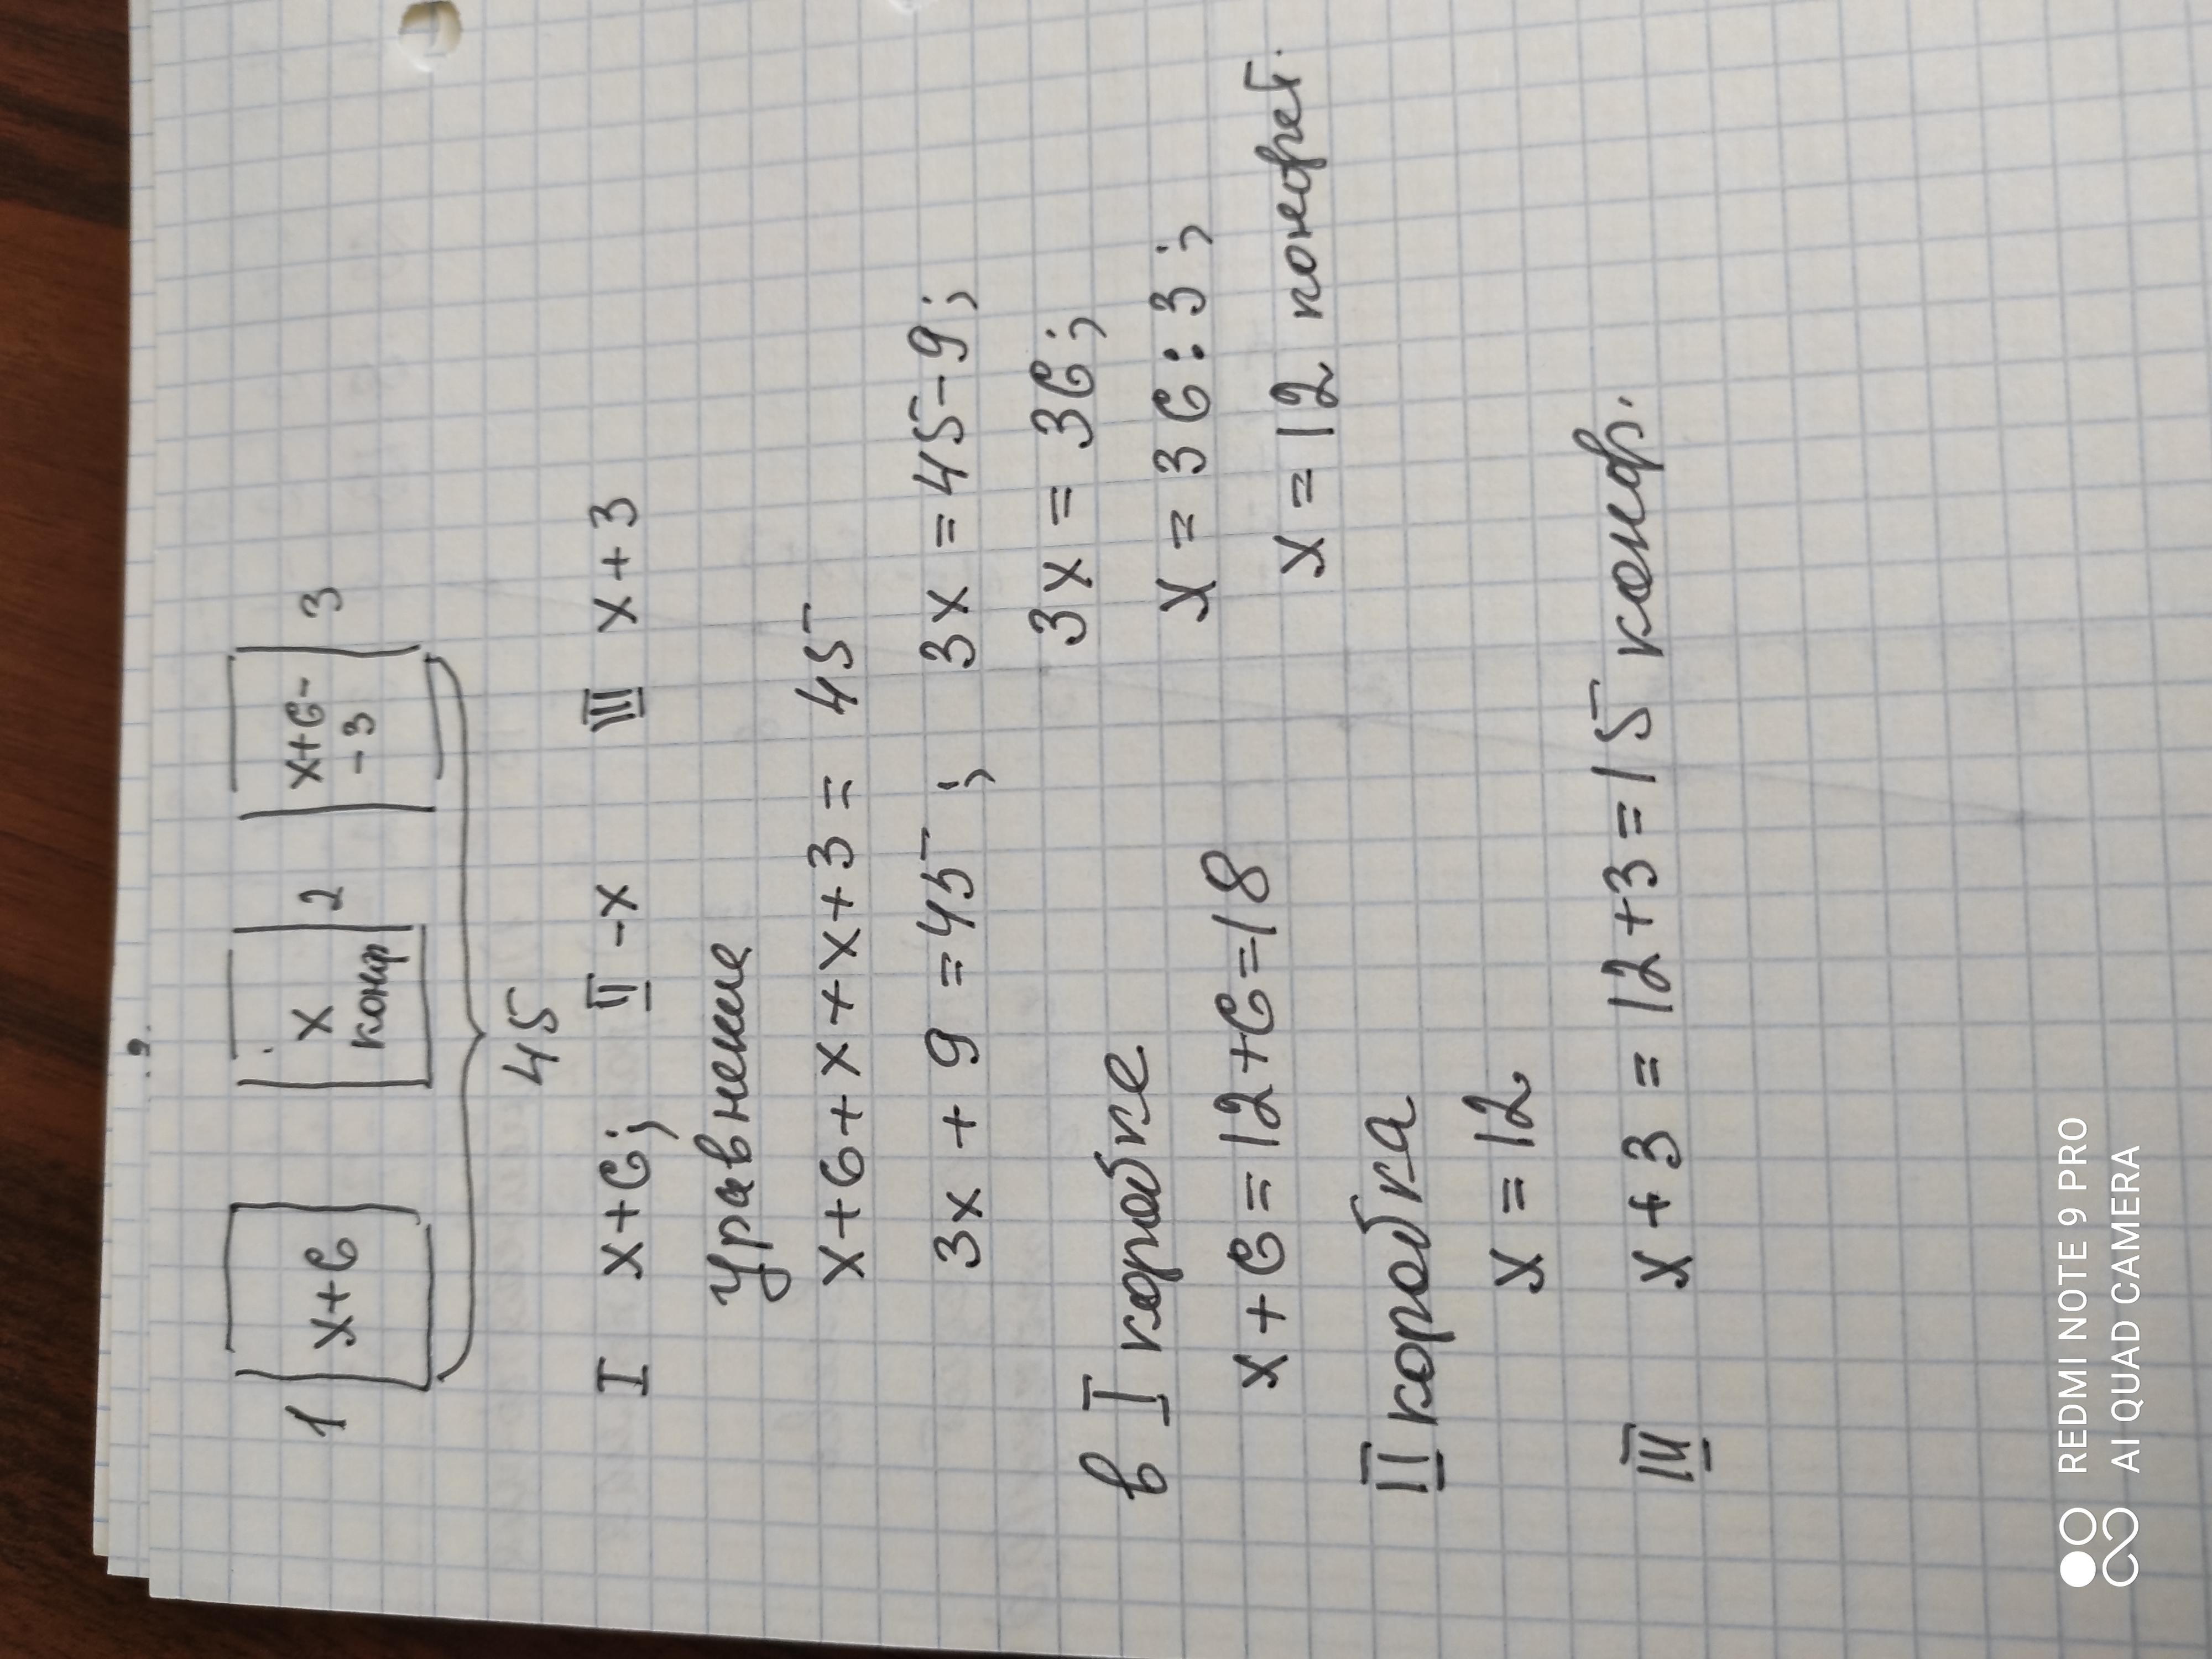 1 x+6 x 2 x+6- 3
конф -3
45
I x+6; II -x III x+3
Уравнение
x+6+x+x+3= 45
3x+9=45; 3x=45-9;
3x=36;
в I коробке x=36:3;
x+6=12+6=18 x=12 конфет.
II коробка
x=12
III x+3=12+3=15 конф.
REDMI NOTE 9 PRO
AI QUAD CAMERA